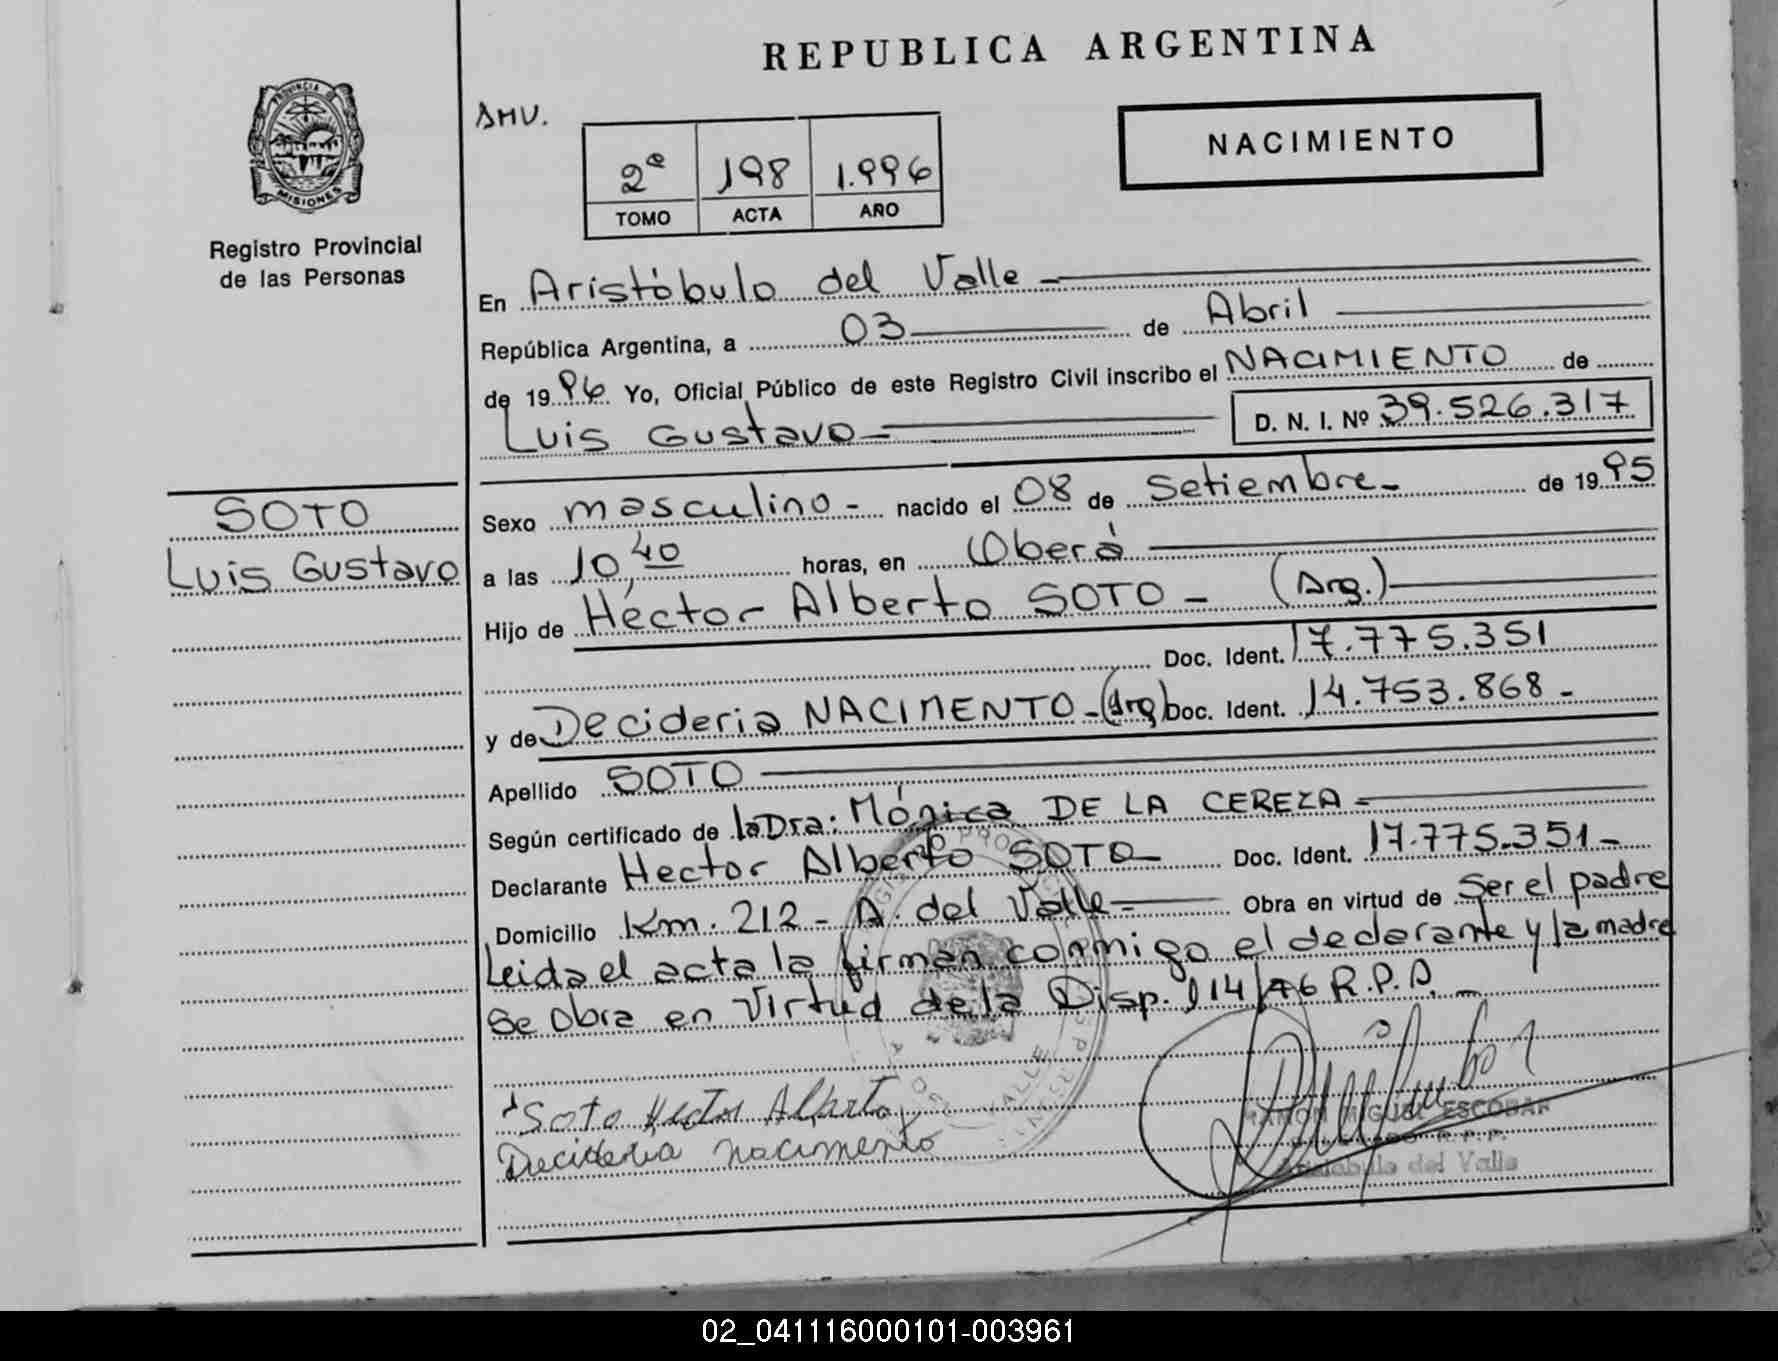 REPUBLICA ARGENTINA
PROVINCIA DE
MISIONES
Registro Provincial
de las Personas
AMV.
2º 198 1.996
TOMO ACTA AÑO
NACIMIENTO
En Aristóbulo del Valle
República Argentina, a 03 de Abril
de 1996 Yo, Oficial Público de este Registro Civil inscribo el NACIMIENTO de
Luis Gustavo D. N. I. Nº 39.526.317
SOTO
Luis Gustavo
Sexo masculino - nacido el 08 de Setiembre - de 1995
a las 10,40 horas, en Oberá
Hijo de Héctor Alberto SOTO - (Arg.)
Doc. Ident. 17.775.351
y de Decideria NACIMENTO - (Arg) Doc. Ident. 14.753.868 -
Apellido SOTO
Según certificado de la Dra: Mónica DE LA CEREZA -
Declarante Hector Alberto SOTO - Doc. Ident. 17.775.351 -
Domicilio Km. 212 - A. del Valle - Obra en virtud de Ser el padre
Leida el acta la firman conmigo el declarante y la madre
Se obra en virtud de la Disp. 114/76 R.P.P. -
Soto Hector Alberto
Decideria nacimento
RAMON MIGUEL ESCOBAR
R.P.P.
Aristobulo del Valle
02_041116000101-003961